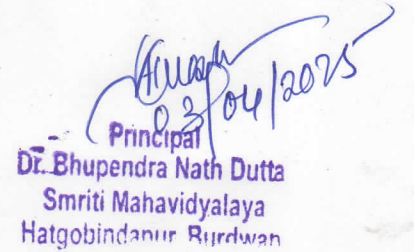 03/04/2025
Principal
Dr. Bhupendra Nath Dutta
Smriti Mahavidyalaya
Hatgobindapur Burdwan